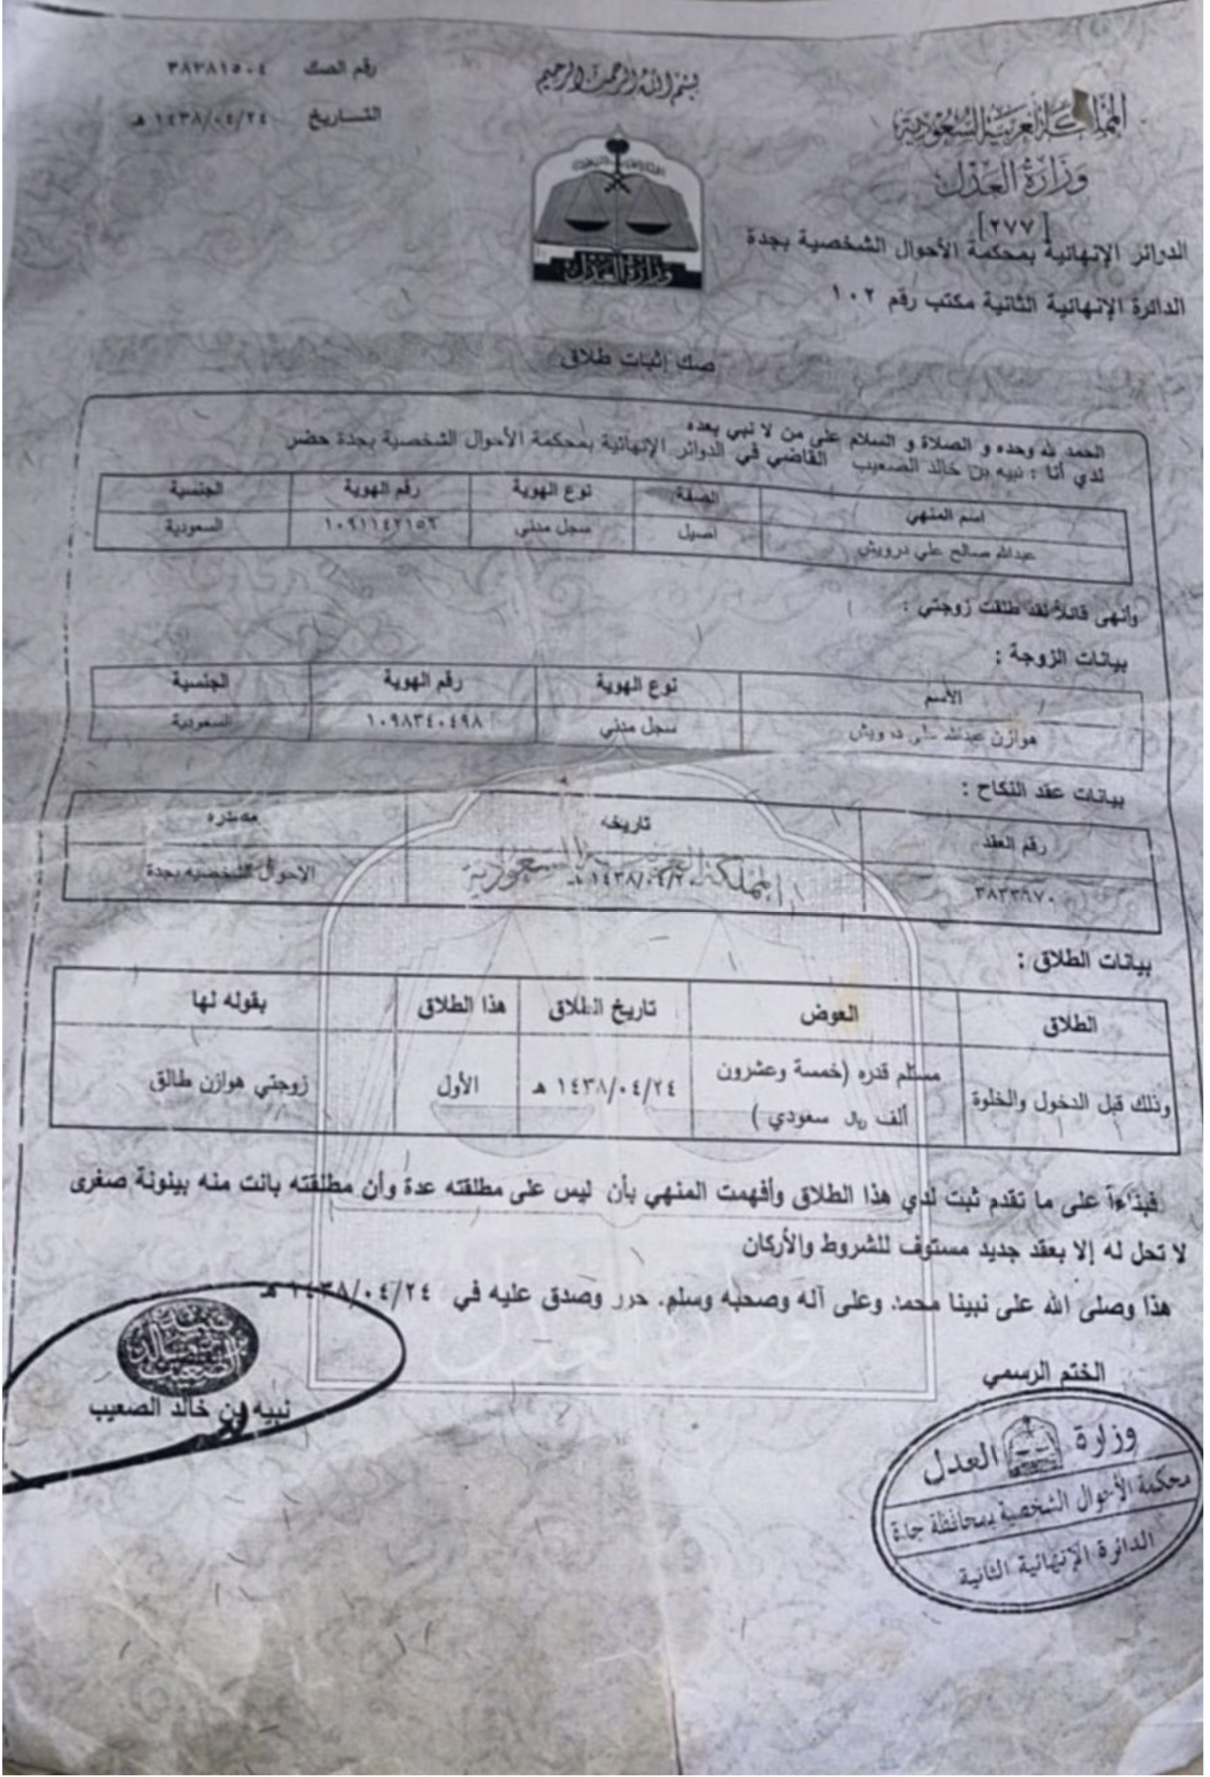 بسم الله الرحمن الرحيم
المملكة العربية السعودية
وزارة العدل
[٢٧٧]
الدوائر الإنهائية بمحكمة الأحوال الشخصية بجدة
الدائرة الإنهائية الثانية مكتب رقم ١٠٢
رقم الصك ٣٨٣٨١٥٠٤
التاريخ ١٤٣٨/٠٤/٢٤ هـ
وزارة العدل
صك إثبات طلاق
الحمد لله وحده و الصلاة و السلام على من لا نبي بعده
لدي أنا : نبيه بن خالد الصعيب القاضي في الدوائر الإنهائية بمحكمة الأحوال الشخصية بجدة حضر
اسم المنهي الصفة نوع الهوية رقم الهوية الجنسية
عبدالله صالح علي درويش أصيل سجل مدني السعودية
وأنهى قائلاً لقد طلقت زوجتي :
بيانات الزوجة :
الأسم نوع الهوية رقم الهوية الجنسية
هوازن عبدالله علي درويش سجل مدني ١٠٩٨٣٤٠٤٩٨ السعودية
بيانات عقد النكاح :
رقم العقد تاريخه مصدره
١٤٣٨/٠٤/٢٠ هـ الاحوال الشخصيه بجدة
بيانات الطلاق :
الطلاق العوض تاريخ الطلاق هذا الطلاق بقوله لها
وذلك قبل الدخول والخلوة مستلم قدره (خمسة وعشرون ألف ريال سعودي ) ١٤٣٨/٠٤/٢٤ هـ الأول زوجتي هوازن طالق
فبناءاً على ما تقدم ثبت لدي هذا الطلاق وأفهمت المنهي بأن ليس على مطلقته عدة وأن مطلقته بانت منه بينونة صغرى
لا تحل له إلا بعقد جديد مستوف للشروط والأركان
هذا وصلى الله على نبينا محمد وعلى آله وصحبه وسلم. حرر وصدق عليه في ١٤٣٨/٠٤/٢٤ هـ
الختم الرسمي
نبيه بن خالد الصعيب
وزارة العدل
محكمة الأحوال الشخصية بمحافظة جدة
الدائرة الإنهائية الثانية
المملكة العربية السعودية
وزارة العدل